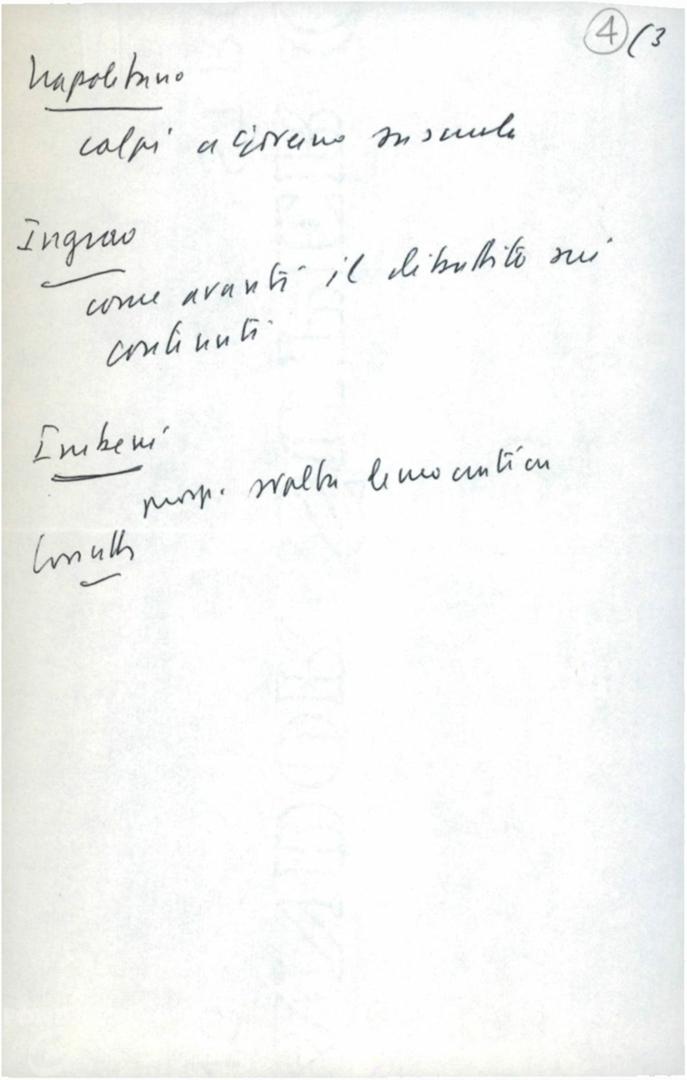 4 (3
Napolitano
colpi a governo su scuola
Ingrao
come avanti il dibattito sui
contenuti
Imbeni
prosp. svolta democratica